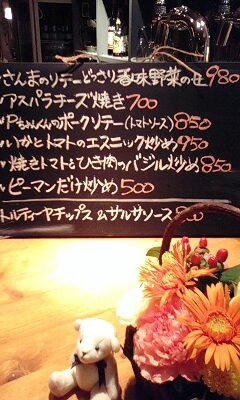 さんまのソテーどっさり香味野菜のせ 980
アスパラチーズ焼き 700
Pちゃんのポークソテー(トマトソース) 850
いかとトマトのエスニック炒め 950
焼きトマトとひき肉のバジル炒め 850
ピーマンだけ炒め 500
トルティーヤチップス & サルサソース